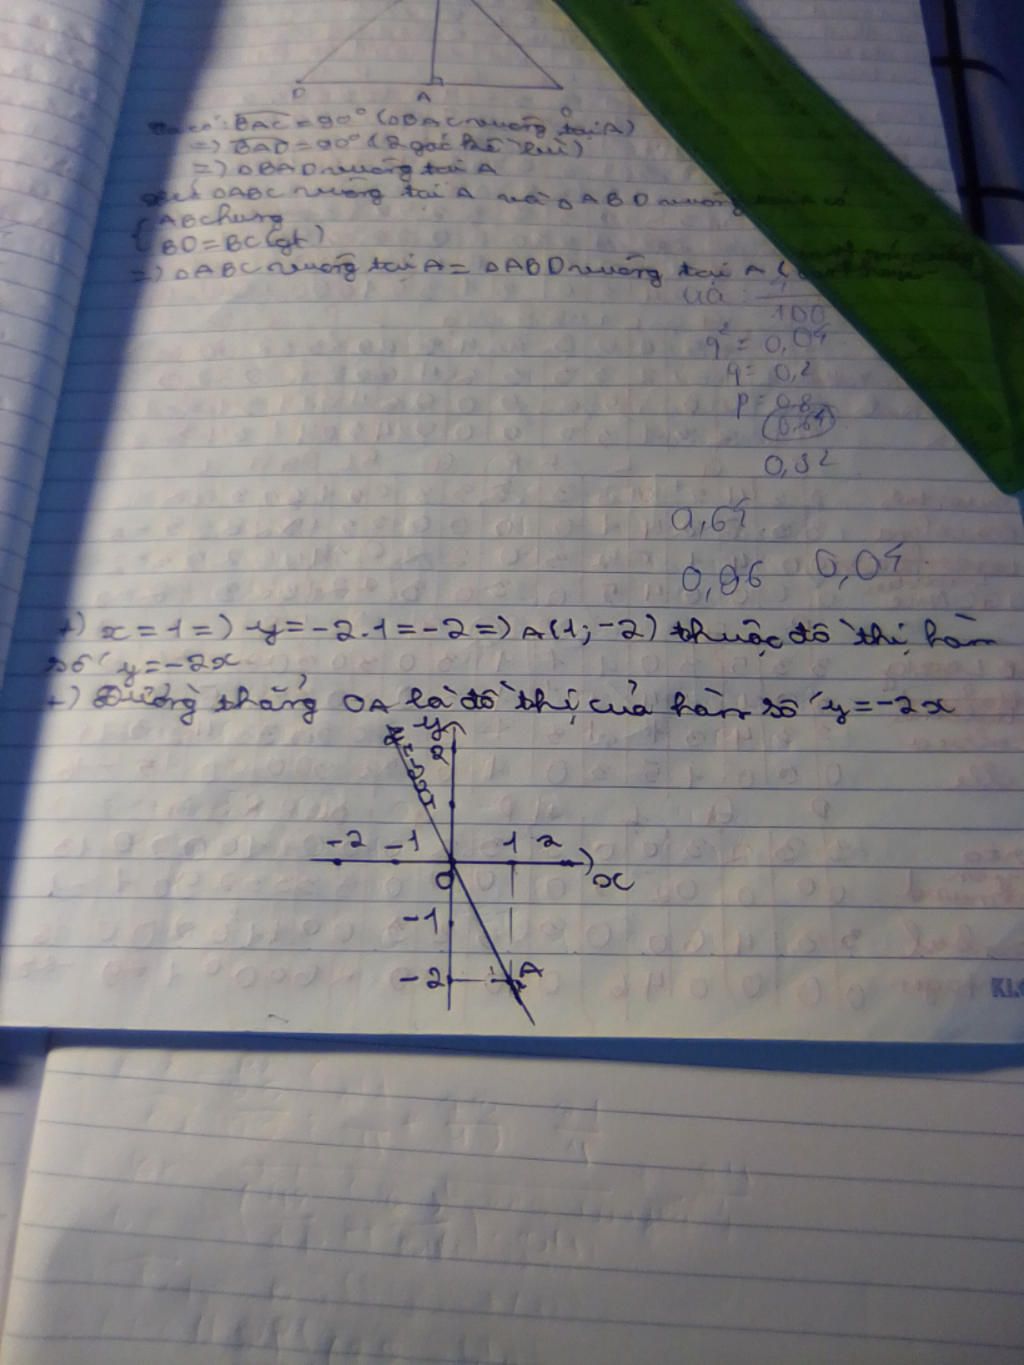 D A C
Ta có: BAC = 90° (△BAC vuông tại A)
=) BAD = 90° (2 góc kề bù)
=) △BAD vuông tại A
△ABC vuông tại A và △ABD vuông tại A có
AB chung
BD = BC (gt)
=) △ABC vuông tại A = △ABD vuông tại A (
100
q² = 0,04
q = 0,2
p = 0,8
0,64
0,32
0,64
0,04
+) x = 1 =) y = -2.1 = -2 =) A(1; -2) thuộc đồ thị hàm
số y = -2x
+) Đường thẳng OA là đồ thị của hàm số y = -2x
y
y=-2x
2
-2 -1 1 2
O x
-1
-2 A